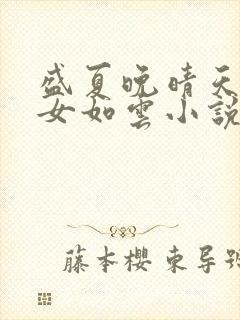 盛夏晚晴天
女如雲小說
藤本櫻 東导